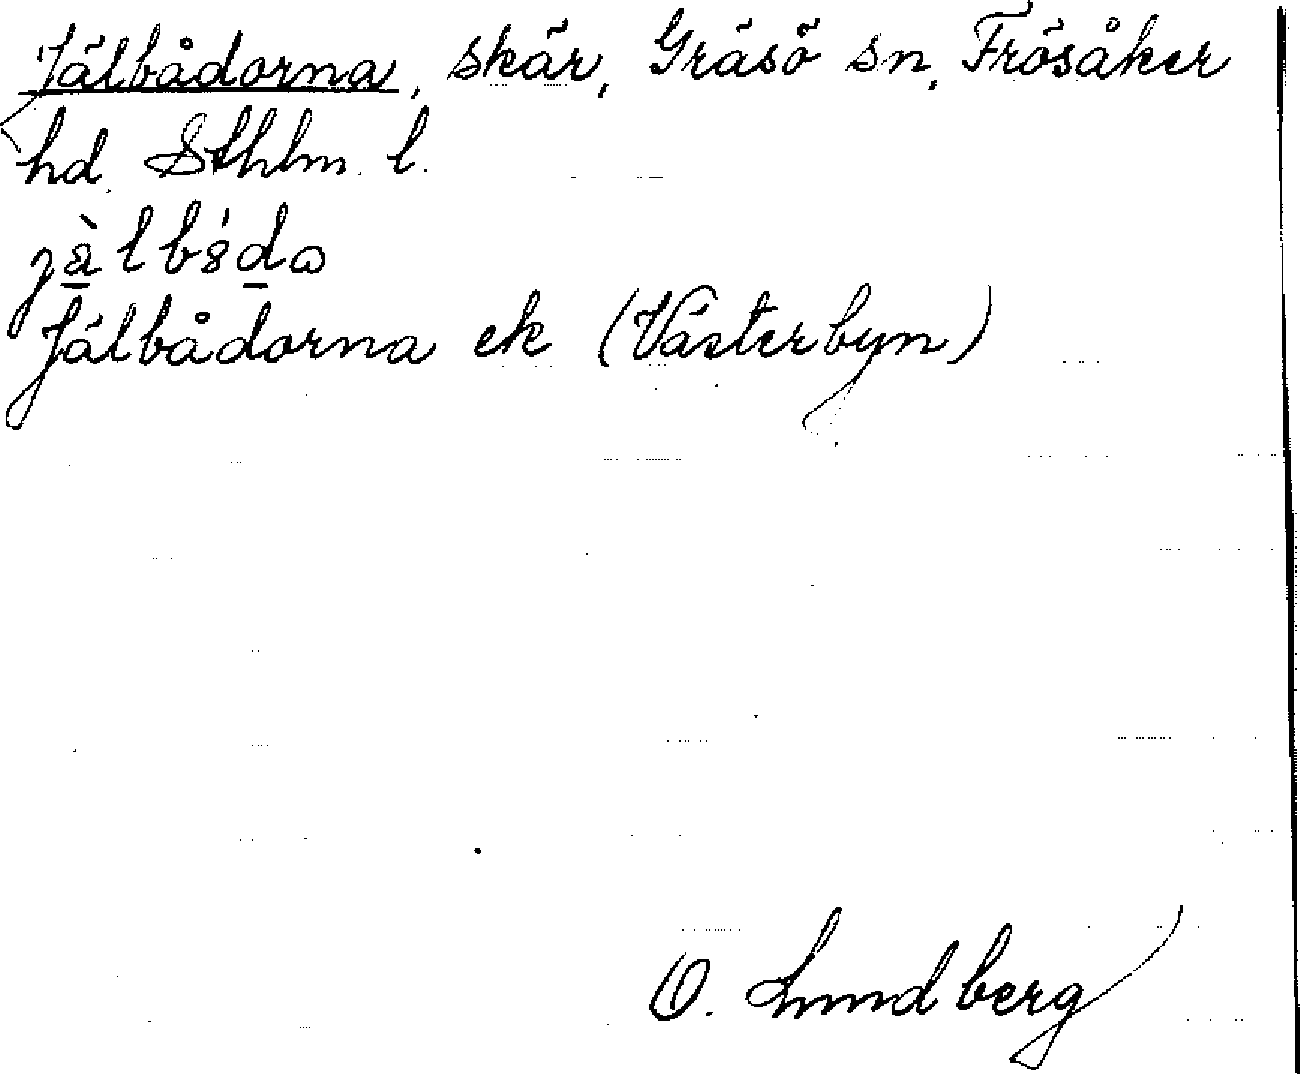 Jälbådorna, skär, Gräsö sn, Frösåker
hd. Sthlm. l.
Jälbådorna ek (Västerbyn)
O. Lundberg